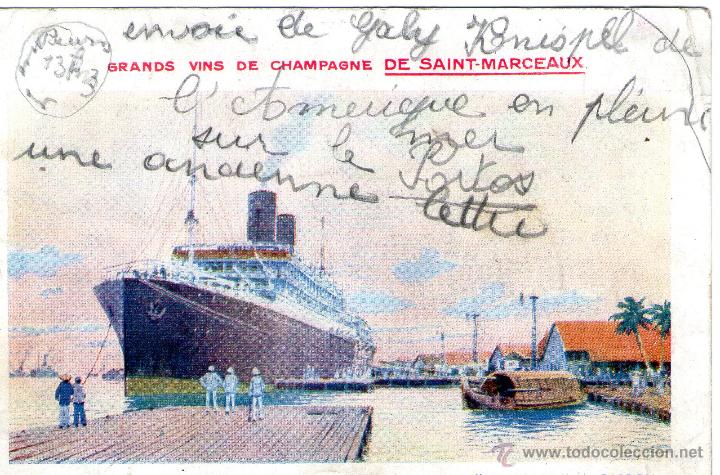 envoie de Gaby Knispel de
GRANDS VINS DE CHAMPAGNE DE SAINT-MARCEAUX
l'Amerique en pleine
mer
sur le Portos
une ancienne lettre
© www.todocoleccion.net